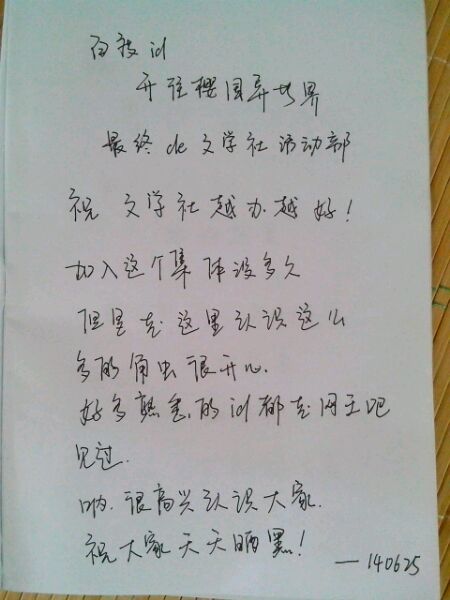 百度id
开往樱国异世界
最终de文学社活动部
祝 文学社越办越好!
加入这个集体没多久
但是在这里认识这么
多的角虫很开心.
好多熟悉的id都在网王吧
见过.
呐.很高兴认识大家.
祝大家天天晒黑!
—140625